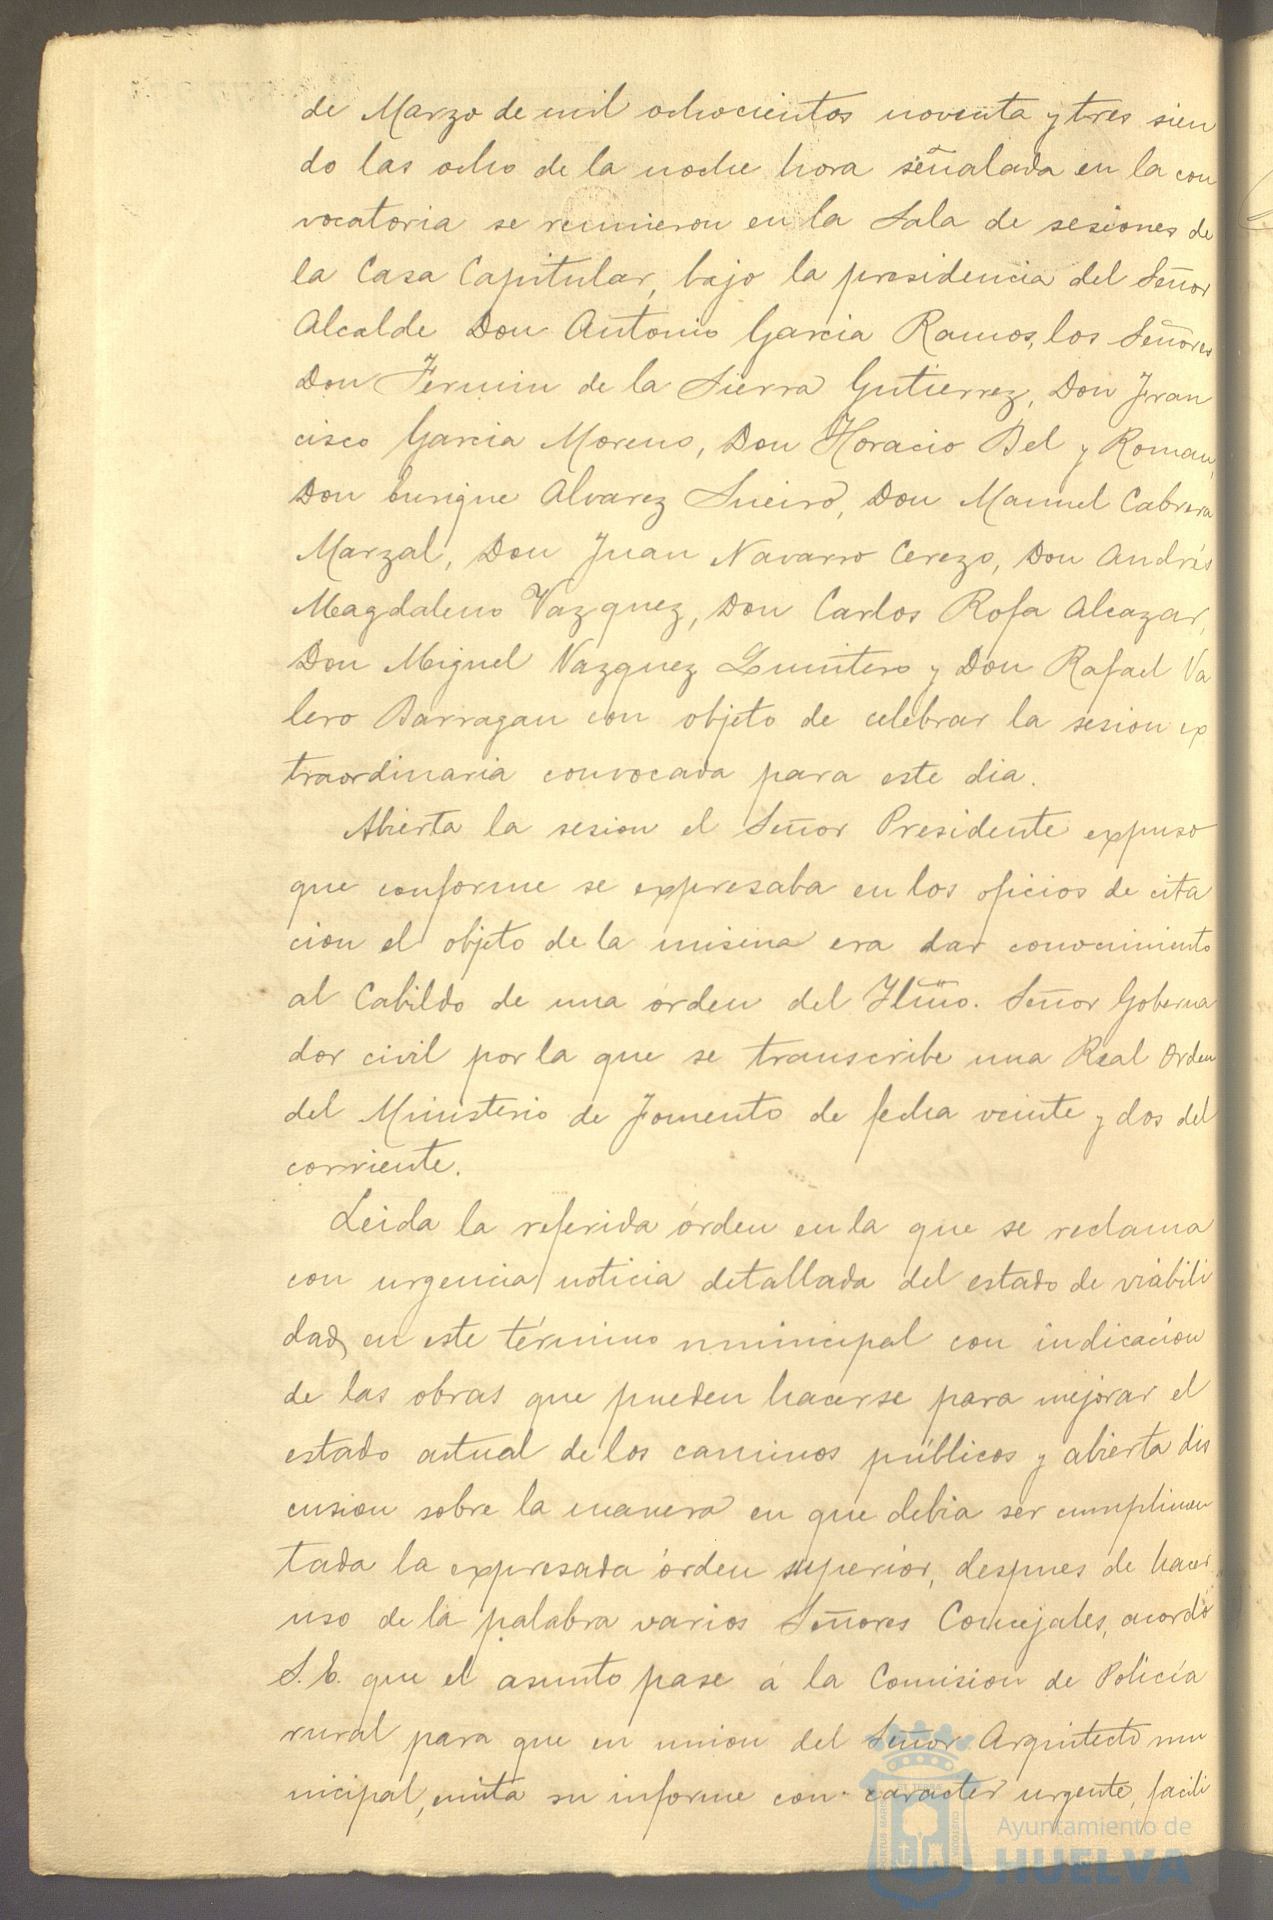 de Marzo de mil ochocientos noventa y tres sien
do las ocho de la noche hora señalada en la con
vocatoria se reunieron en la Sala de sesiones de
la Casa Capitular, bajo la presidencia del Señor
Alcalde Don Antonio Garcia Ramos, los Señores
Don Fermin de la Sierra Gutierrez, Don Fran
cisco Garcia Moreno, Don Horacio Bel y Roman,
Don Enrique Alvarez Sueiro, Don Manuel Cabrera
Marzal, Don Juan Navarro Cerezo, Don Andrés
Magdaleno Vazquez, Don Carlos Rofa Alcazar,
Don Miguel Vazquez Quintero y Don Rafael Va
lero Barragan con objeto de celebrar la sesion ex
traordinaria convocada para este dia.
Abierta la sesion el Señor Presidente expuso
que conforme se expresaba en los oficios de cita
cion el objeto de la misma era dar conocimiento
al Cabildo de una órden del Iltmo. Señor Goberna
dor civil por la que se transcribe una Real Orden
del Ministerio de Fomento de fecha veinte y dos del
corriente.
Leida la referida órden en la que se reclama
con urgencia noticia detallada del estado de viabili
dad, en este término municipal con indicacion
de las obras que pueden hacerse para mejorar el
estado actual de los caminos públicos y abierta dis
cusion sobre la manera en que debia ser cumplimen
tada la expresada órden superior, despues de hacer
uso de la palabra varios Señores Concejales, acordó
S. E. que el asunto pase á la Comision de Policía
rural para que en union del Señor Arquitecto mu
nicipal, emita su informe con caracter urgente, facili
Ayuntamiento de
HUELVA